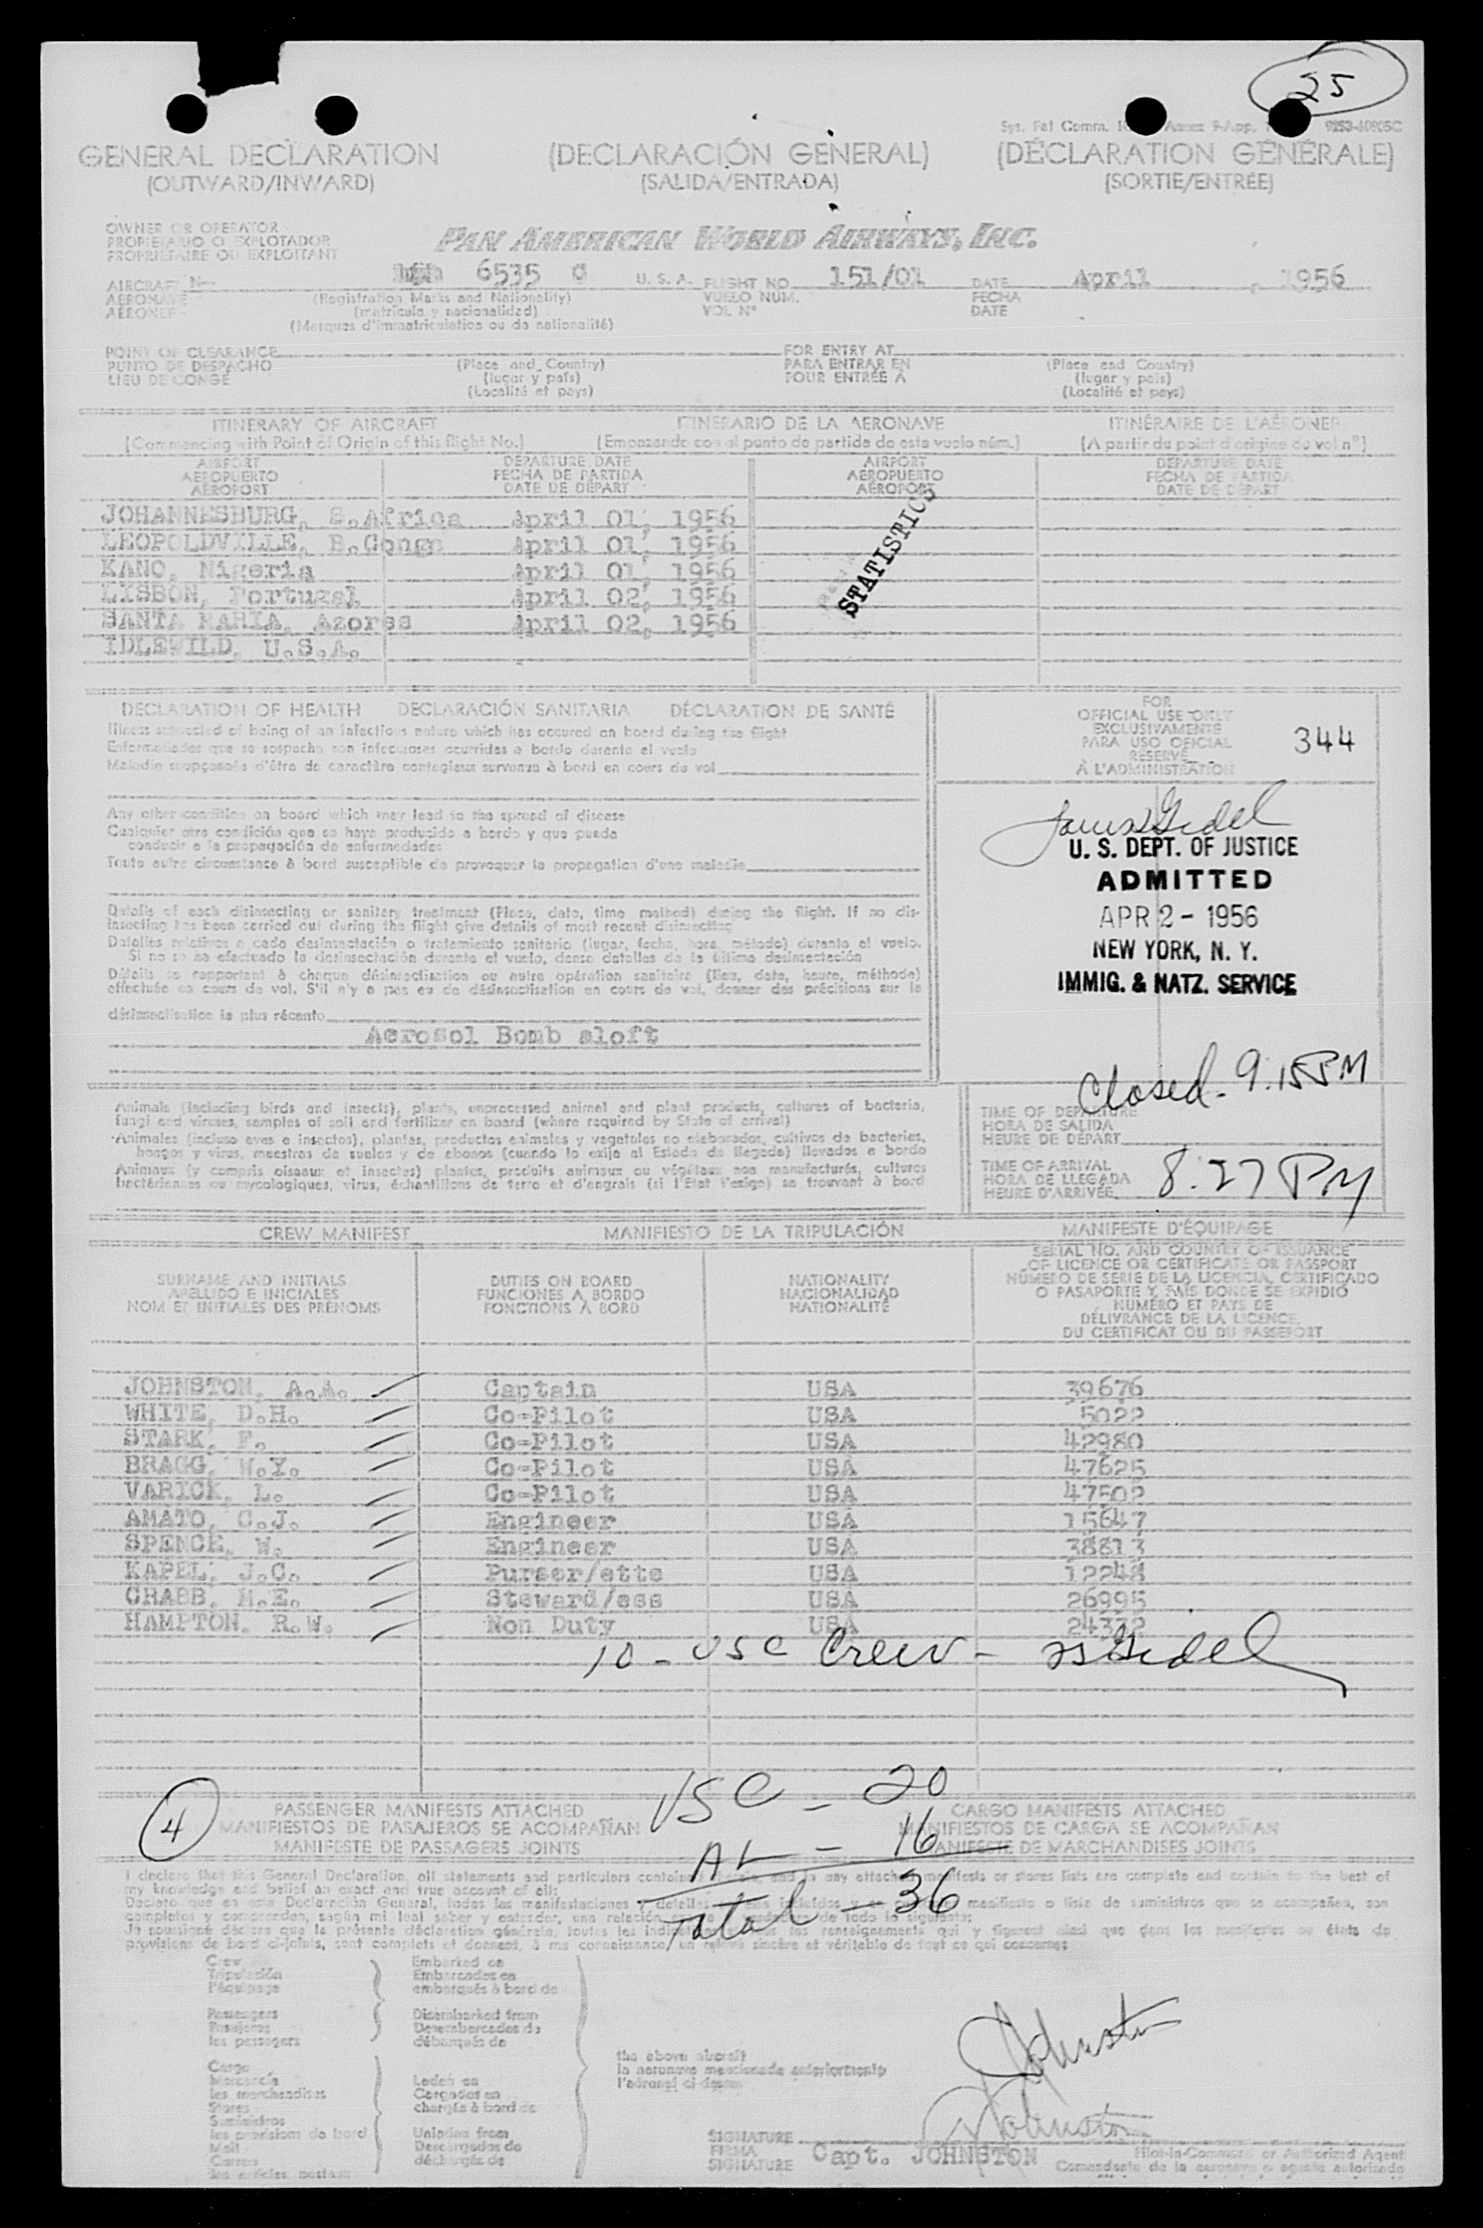 25
GENERAL DECLARATION (DECLARACIÓN GENERAL) (DÉCLARATION GÉNÉRALE)
(OUTWARD/INWARD) (SALIDA/ENTRADA) (SORTIE/ENTRÉE)
OWNER OR OPERATOR
PROPIETARIO O EXPLOTADOR
PROPRIETAIRE OU EXPLOITANT
PAN AMERICAN WORLD AIRWAYS, INC.
AIRCRAFT N- 6535 C U. S. A. FLIGHT NO. 151/01 DATE April , 1956
AERONAVE (Registration Marks and Nationality) VUELO NUM. FECHA
AÉRONEF (matrícula y nacionalidad) VOL Nº DATE
(Marques d'immatriculation ou de nationalité)
POINT OF CLEARANCE FOR ENTRY AT
PUNTO DE DESPACHO (Place and Country) PARA ENTRAR EN (Place and Country)
LIEU DE CONGÉ (lugar y país) POUR ENTRÉE A (lugar y país)
(Localité et pays) (Localité et pays)
ITINERARY OF AIRCRAFT ITINERARIO DE LA AERONAVE ITINÉRAIRE DE L'AÉRONEF
(Commencing with Point of Origin of this flight No.) (Empezando con el punto de partida de este vuelo núm.) (A partir du point d'origine du vol nº)
AIRPORT DEPARTURE DATE AIRPORT DEPARTURE DATE
AEROPUERTO FECHA DE PARTIDA AEROPUERTO FECHA DE PARTIDA
AÉROPORT DATE DE DÉPART AÉROPORT DATE DE DÉPART
JOHANNESBURG, S.Africa April 01, 1956
LEOPOLDVILLE, B.Congo April 01, 1956
KANO, Nigeria April 01, 1956
LISBON, Portugal April 02, 1956
SANTA MARIA, Azores April 02, 1956
IDLEWILD, U.S.A.
STATISTICS
DECLARATION OF HEALTH DECLARACIÓN SANITARIA DÉCLARATION DE SANTÉ
Illness suspected of being of an infectious nature which has occured on board during the flight
Enfermedades que se sospecha son infecciosas ocurridas a bordo durante el vuelo
Maladie soupçonnée d'être de caractère contagieux survenue à bord en cours de vol
Any other condition on board which may lead to the spread of disease
Cualquier otra condición que se haya producido a bordo y que pueda
conducir a la propagación de enfermedades
Toute autre circonstance à bord susceptible de provoquer la propagation d'une maladie
Details of each disinsecting or sanitary treatment (Place, date, time method) during the flight. If no dis-
insecting has been carried out during the flight give details of most recent disinsecting
Detalles relativos a cada desinsectación o tratamiento sanitario (lugar, fecha, hora, método) durante el vuelo.
Si no se ha efectuado la desinsectación durante el vuelo, dense detalles de la última desinsectación
Détails se rapportant à chaque désinsectisation ou autre opération sanitaire (lieu, date, heure, méthode)
effectuée en cours de vol. S'il n'y a pas eu de désinsectisation en cours de vol, donner des précisions sur la
désinsectisation la plus récente
Aerosol Bomb aloft
FOR
OFFICIAL USE ONLY
EXCLUSIVAMENTE
PARA USO OFICIAL
RÉSERVÉ
À L'ADMINISTRATION
344
U. S. DEPT. OF JUSTICE
ADMITTED
APR 2 - 1956
NEW YORK, N. Y.
IMMIG. & NATZ. SERVICE
Closed. 9:15PM
Animals (including birds and insects), plants, unprocessed animal and plant products, cultures of bacteria,
fungi and viruses, samples of soil and fertilizer on board (where required by State of arrival)
Animales (incluso aves e insectos), plantas, productos animales y vegetales no elaborados, cultivos de bacterias,
hongos y virus, muestras de suelos y de abonos (cuando lo exija el Estado de llegada) llevados a bordo
Animaux (y compris oiseaux et insectes) plantes, produits animaux ou végétaux non manufacturés, cultures
bactériennes ou mycologiques, virus, échantillons de terre et d'engrais (si l'État l'exige) se trouvant à bord
TIME OF DEPARTURE
HORA DE SALIDA
HEURE DE DÉPART
TIME OF ARRIVAL
HORA DE LLEGADA
HEURE D'ARRIVÉE
8:27 PM
CREW MANIFEST MANIFIESTO DE LA TRIPULACIÓN MANIFESTE D'ÉQUIPAGE
SURNAME AND INITIALS
APELLIDO E INICIALES
NOM ET INITIALES DES PRÉNOMS
DUTIES ON BOARD
FUNCIONES A BORDO
FONCTIONS À BORD
NATIONALITY
NACIONALIDAD
NATIONALITÉ
SERIAL NO. AND COUNTRY OF ISSUANCE
OF LICENCE OR CERTIFICATE OR PASSPORT
NÚMERO DE SERIE DE LA LICENCIA, CERTIFICADO
O PASAPORTE Y PAÍS DONDE SE EXPIDIÓ
NUMÉRO ET PAYS DE
DÉLIVRANCE DE LA LICENCE,
DU CERTIFICAT OU DU PASSEPORT
JOHNSTON, A.A. Captain USA 39676
WHITE, D.H. Co-Pilot USA 5022
STARK, F. Co-Pilot USA 42980
BRAGG, W.Y. Co-Pilot USA 47625
VARICK, L. Co-Pilot USA 47502
AMATO, C.J. Engineer USA 15647
SPENCE, W. Engineer USA 38813
KAPEL, J.C. Purser/ette USA 12248
CRABB, M.E. Steward/ess USA 26995
HAMPTON, R.W. Non Duty USA 24332
10 - USC Crew -
USC - 20
AL - 16
Total - 36
4
PASSENGER MANIFESTS ATTACHED CARGO MANIFESTS ATTACHED
MANIFIESTOS DE PASAJEROS SE ACOMPAÑAN MANIFIESTOS DE CARGA SE ACOMPAÑAN
MANIFESTE DE PASSAGERS JOINTS MANIFESTE DE MARCHANDISES JOINTS
Crew
Tripulación
l'équipage
Embarked on
Embarcados en
embarqués à bord de
Passengers
Pasajeros
les passagers
Disembarked from
Desembarcados de
débarqués de
Cargo
Mercancía
les marchandises
Stores
Suministros
les provisions de bord
Mail
Correo
Laden on
Cargados en
chargés à bord de
Unladen from
Descargados de
déchargés de
the above aircraft
la aeronave mencionada anteriormente
l'aéronef ci-dessus
Johnston
Johnston
SIGNATURE
FIRMA
SIGNATURE
Capt. JOHNSTON
Pilot-in-Command or Authorized Agent
Comandante de la aeronave o agente autorizado